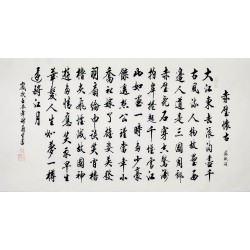 赤壁懷古
蘇軾詞
大江東去浪淘盡千
古風流人物故壘西
邊人道是三國周郎
赤壁亂石穿空驚濤
拍岸捲起千堆雪江
山如畫一時多少豪
傑遙想公瑾當年小
喬初嫁了雄姿英發
羽扇綸巾談笑間檣
櫓灰飛煙滅故國神
遊多情應笑我早生
華髮人生如夢一樽
還酹江月